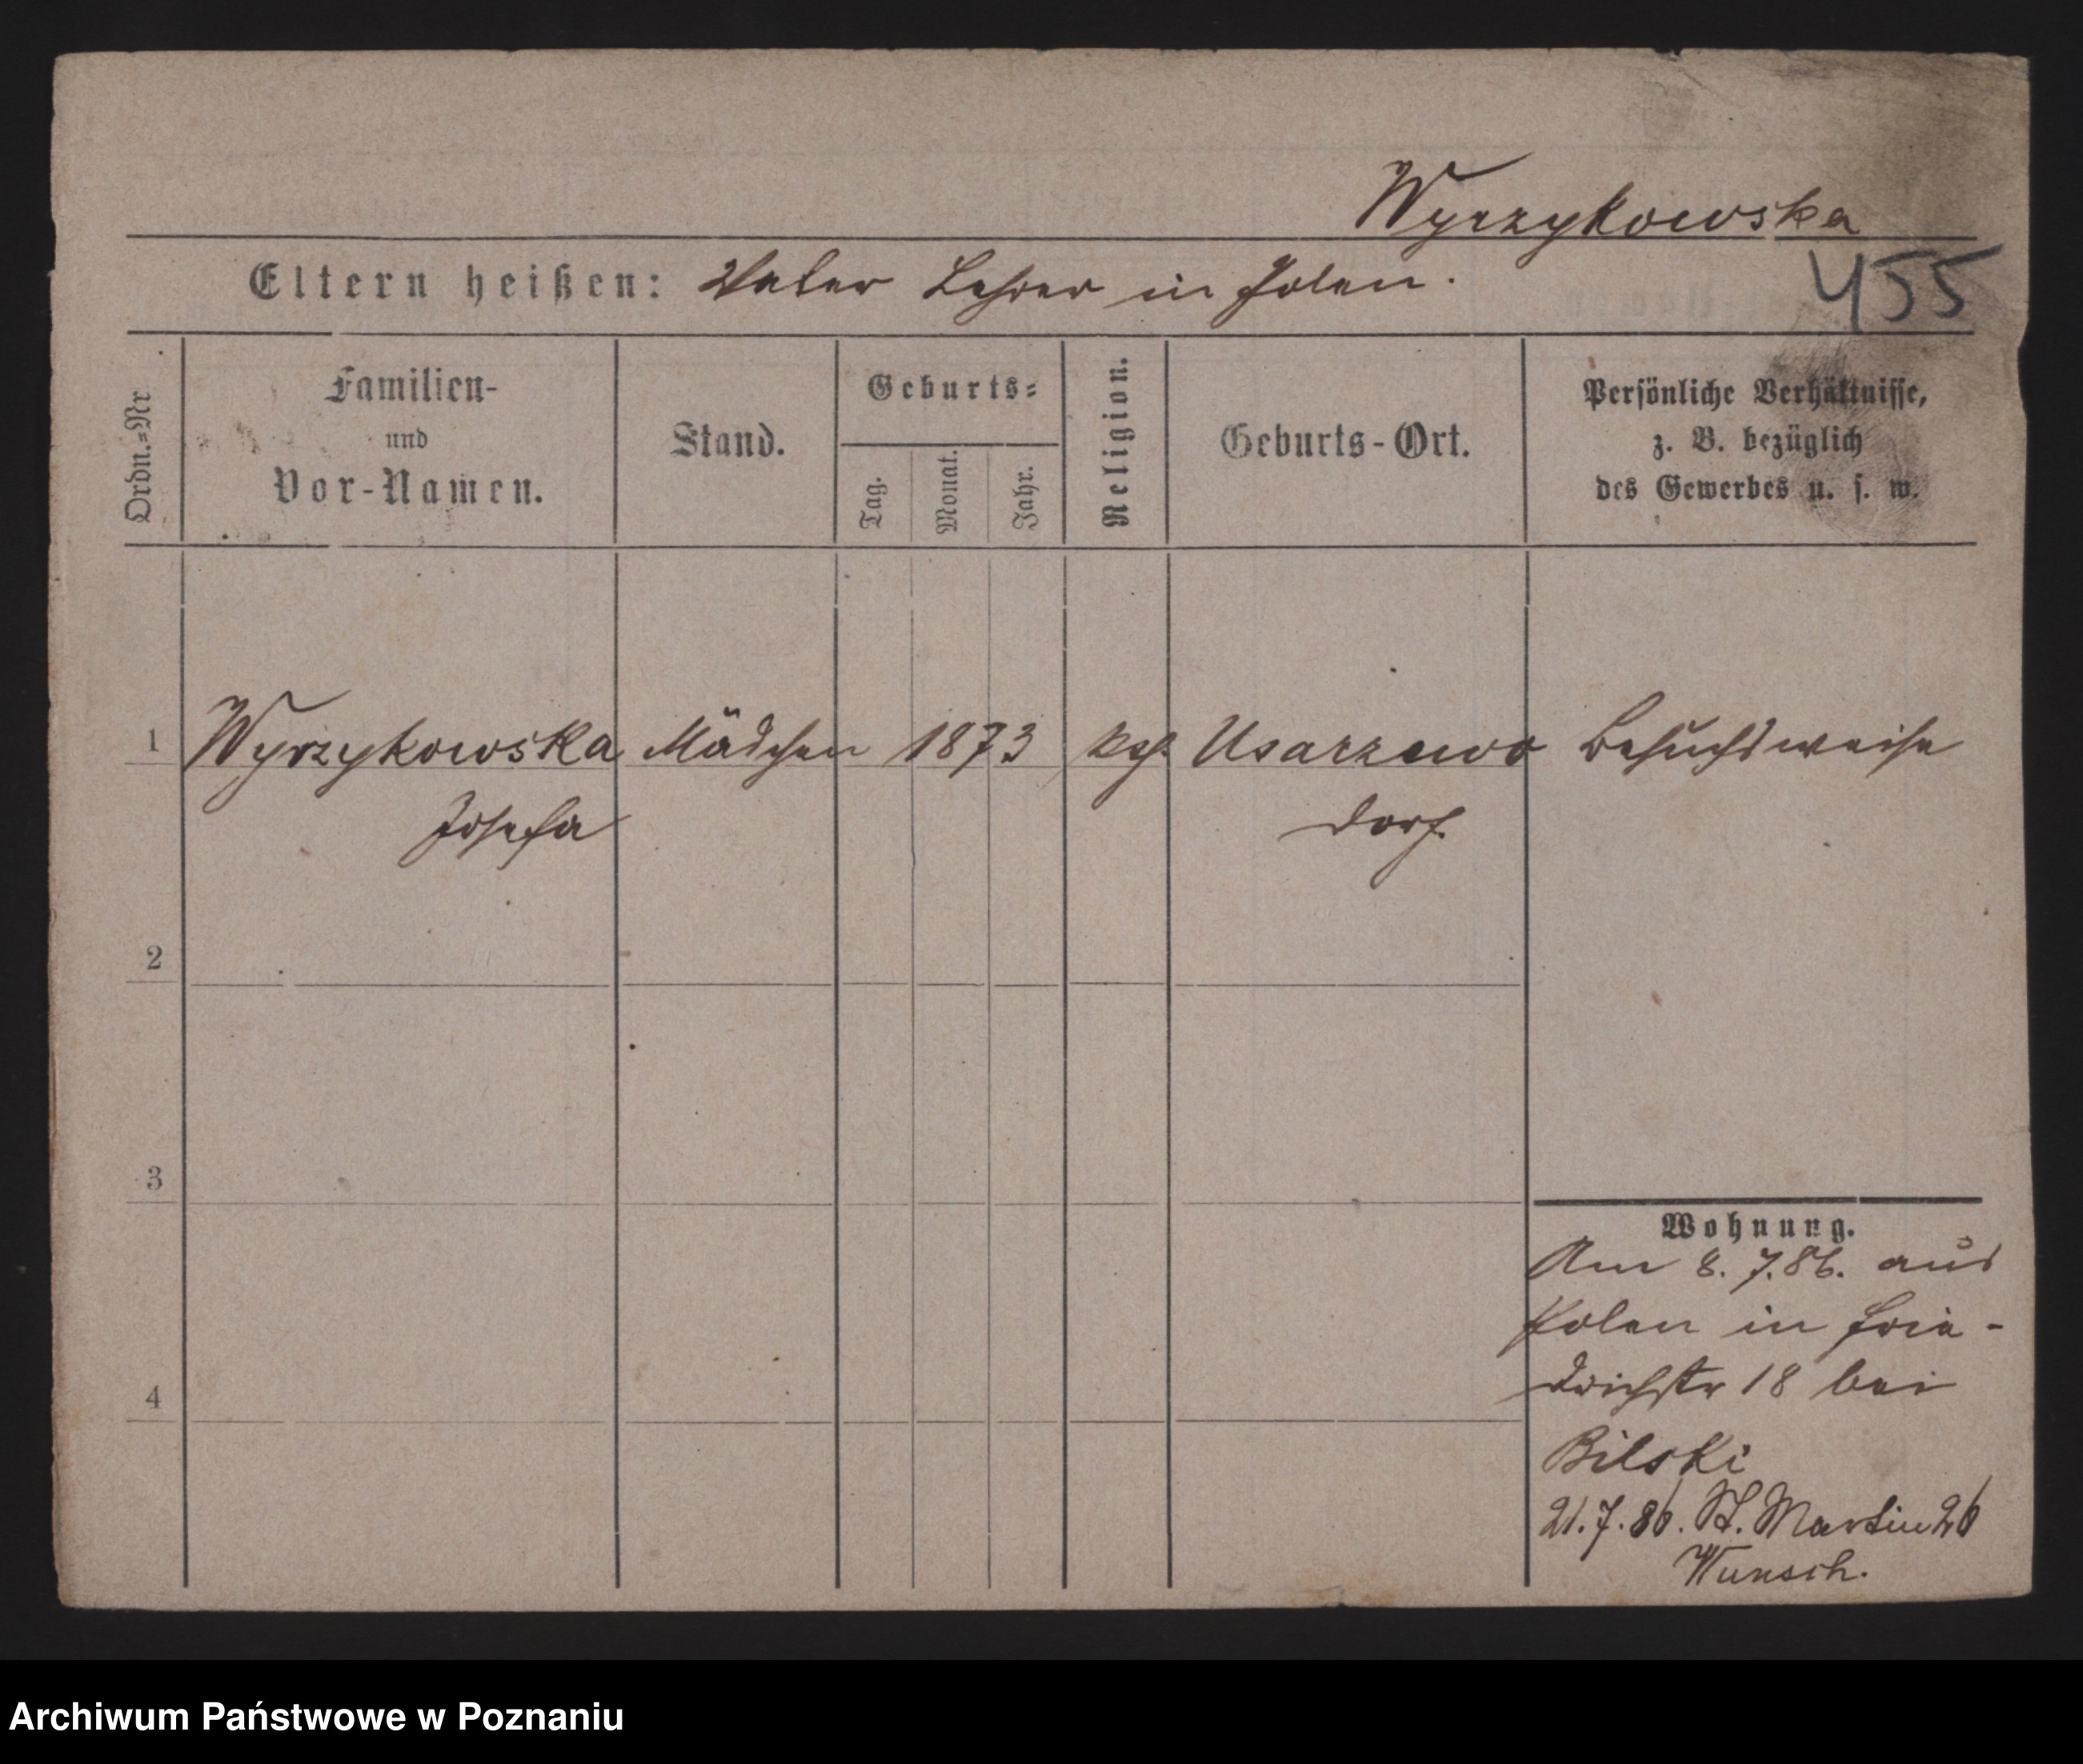 Wyrzykowska
Eltern heißen: Vater Lehrer in Polen.
455
Ordn.=Nr
Familien-
und
Vor-Namen.
Stand.
Geburts=
Tag.
Monat.
Jahr.
Religion.
Geburts-Ort.
Persönliche Verhältnisse,
z. B. bezüglich
des Gewerbes u. s. w.
1 Wyrzykowska Mädchen 1873 kth. Usarzewo Besuchsweise
Josefa Dorf.
2
3
4
Wohnung.
Am 8. 7. 86. aus
Polen in Frie-
drichstr 18 bei
Bilski
21. 7. 86. St. Martin 26
Wunsch.
Archiwum Państwowe w Poznaniu